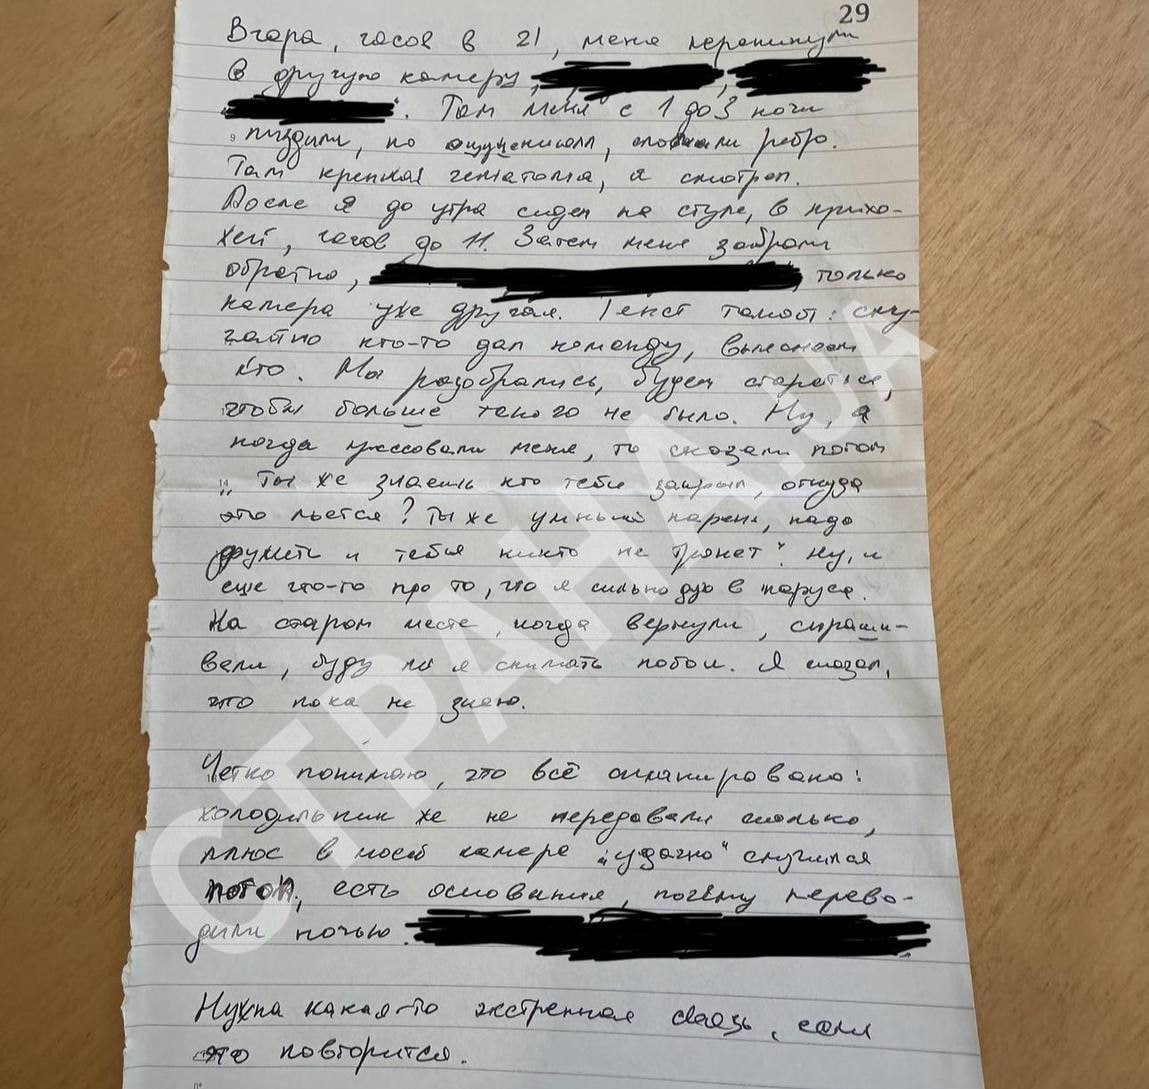 29
Вчера, часов в 21, меня перекинули
в другую камеру,
. Там меня с 1 до 3 ночи
пиздили, по ощущениям, сломали ребро.
Там крепкая гематома, я смотрел.
После я до утра сидел на стуле, в прихо-
жей, часов до 11. Затем меня забрали
обратно, , только
камера уже другая. Текст такой: слу-
чайно кто-то дал команду, выясняем
кто. Мы разобрались, будем стараться,
чтобы больше такого не было. Ну, а
когда меня, то сказали потом
"Ты же знаешь кто тебя закрыл, откуда
это льется? Ты же умный парень, надо
дружить и тебя никто не тронет". Ну, и
еще что-то про то, что я сильно дую в паруса.
На старом месте, когда вернули, спраши-
вали, буду ли я снимать побои. Я сказал,
что пока не знаю.
Четко понимаю, что всё спланировано:
холодильник же не передавали сколько,
плюс в моей камере "удачно" случился
потоп, есть основания, почему перево-
дили ночью.
Нужна какая-то экстренная связь, если
это повторится.
СТРАНА.UA